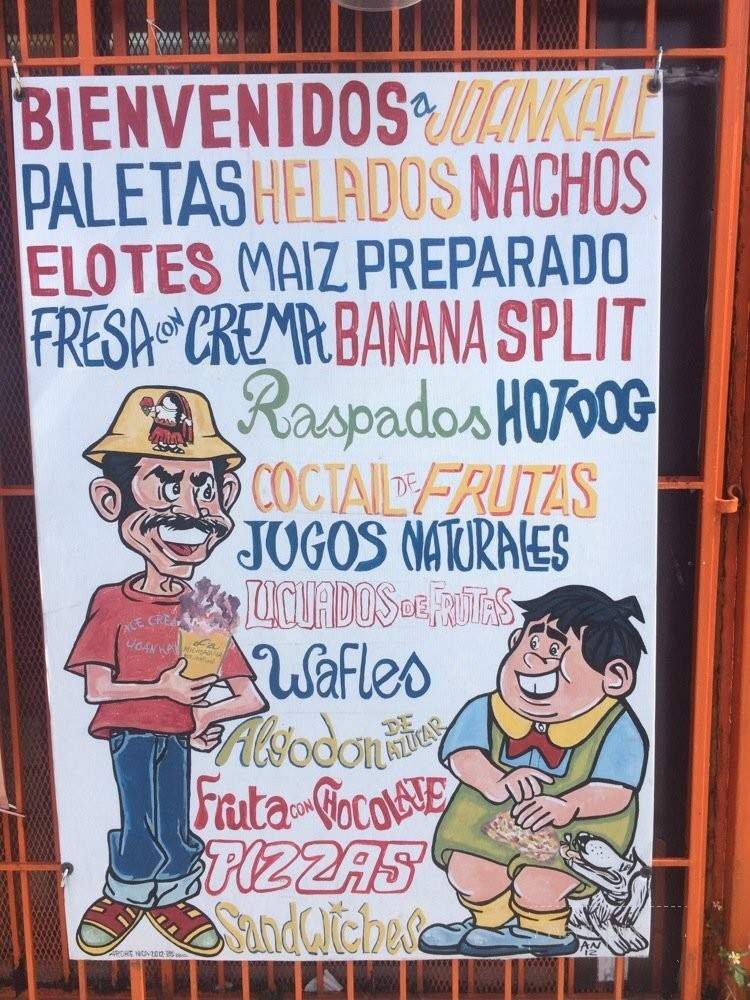 BIENVENIDOS a JOANKALE
PALETAS HELADOS NACHOS
ELOTES MAIZ PREPARADO
FRESA CON CREMA BANANA SPLIT
Raspados HOTDOG
COCTAIL DE FRUTAS
JUGOS NATURALES
LICUADOS DE FRUTAS
Wafles
Algodon DE AZUCAR
Fruta CON CHOCOLATE
PIZZAS
Sandwiches
ICE CREA
JOANKA
La
MICHOACANA
AN
12